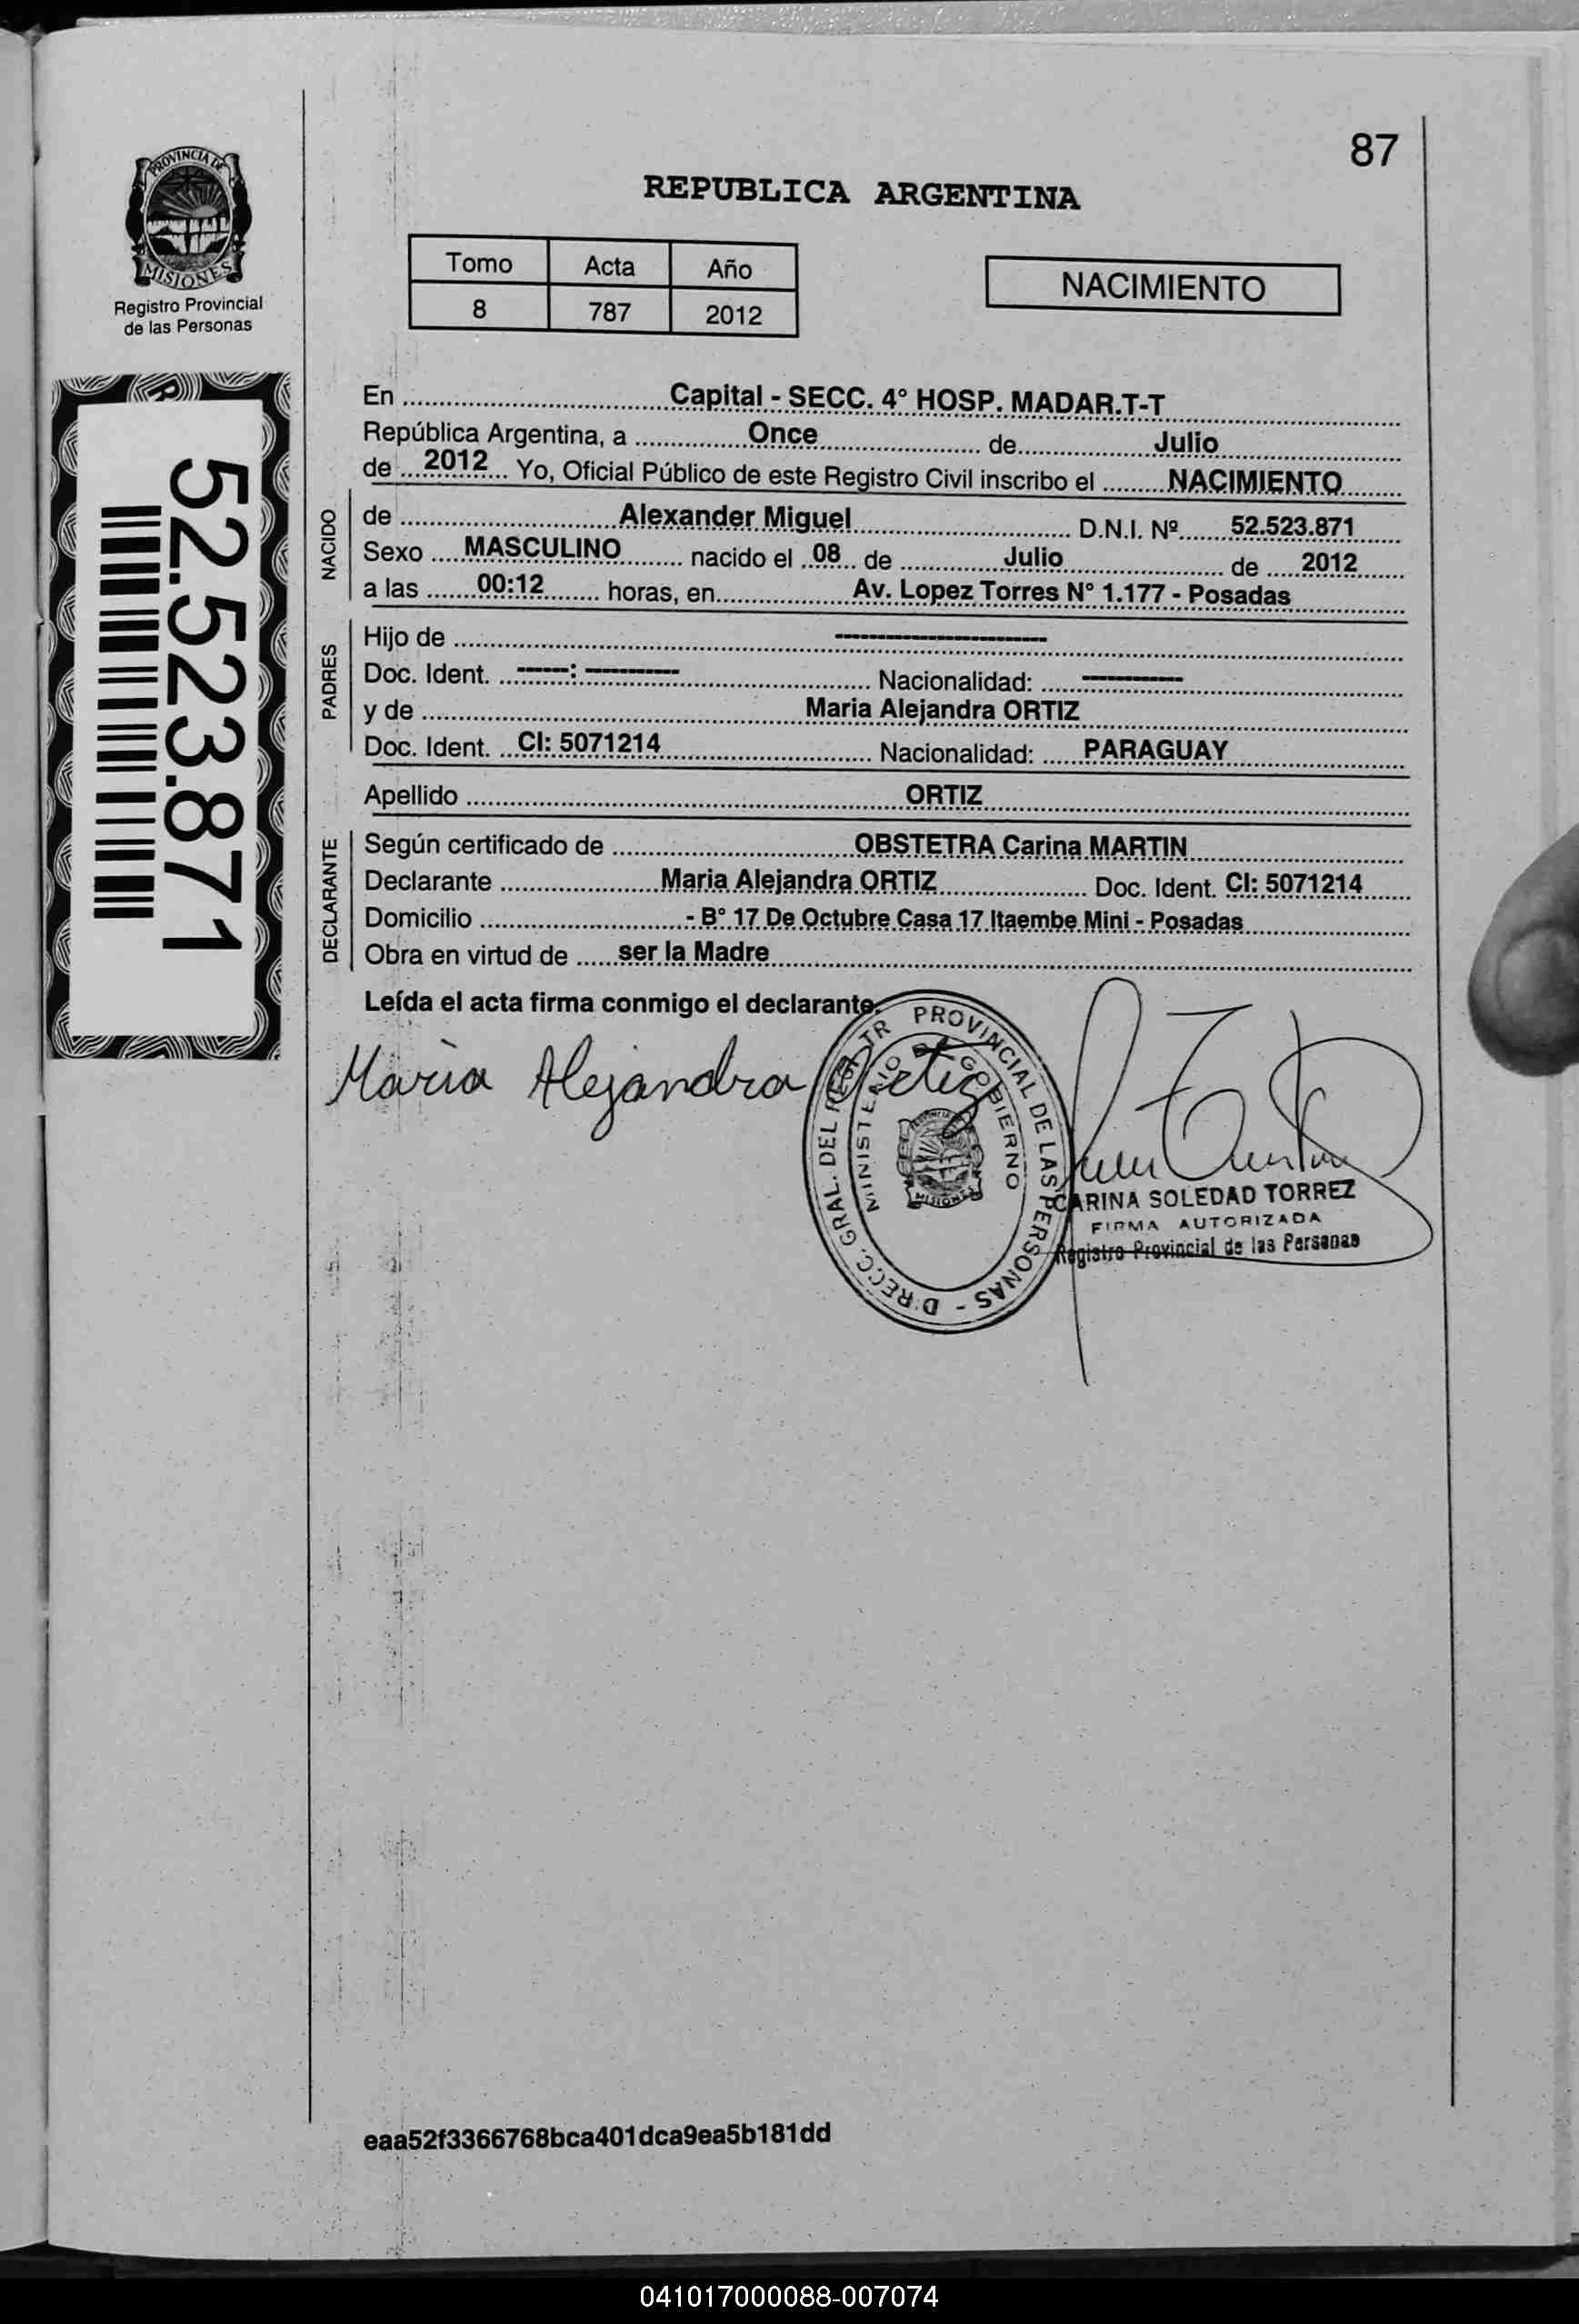 87
PROVINCIA DE
MISIONES
Registro Provincial
de las Personas
REPUBLICA ARGENTINA
Tomo Acta Año
8 787 2012
NACIMIENTO
52.523.871
En Capital - SECC. 4° HOSP. MADAR.T-T
República Argentina, a Once de Julio
de 2012 Yo, Oficial Público de este Registro Civil inscribo el NACIMIENTO
NACIDO
de Alexander Miguel D.N.I. Nº 52.523.871
Sexo MASCULINO nacido el 08 de Julio de 2012
a las 00:12 horas, en Av. Lopez Torres N° 1.177 - Posadas
PADRES
Hijo de -----------------------
Doc. Ident. ------: ----------- Nacionalidad: ------------
y de Maria Alejandra ORTIZ
Doc. Ident. CI: 5071214 Nacionalidad: PARAGUAY
Apellido ORTIZ
DECLARANTE
Según certificado de OBSTETRA Carina MARTIN
Declarante Maria Alejandra ORTIZ Doc. Ident. CI: 5071214
Domicilio - B° 17 De Octubre Casa 17 Itaembe Mini - Posadas
Obra en virtud de ser la Madre
Leída el acta firma conmigo el declarante.
Maria Alejandra Ortiz
PROVINCIAL DE LAS PERSONAS - DIRECC. GRAL. DEL REGISTR
MINISTERIO DE GOBIERNO
MISIONES
CARINA SOLEDAD TORREZ
FIRMA AUTORIZADA
Registro Provincial de las Personas
eaa52f3366768bca401dca9ea5b181dd
041017000088-007074